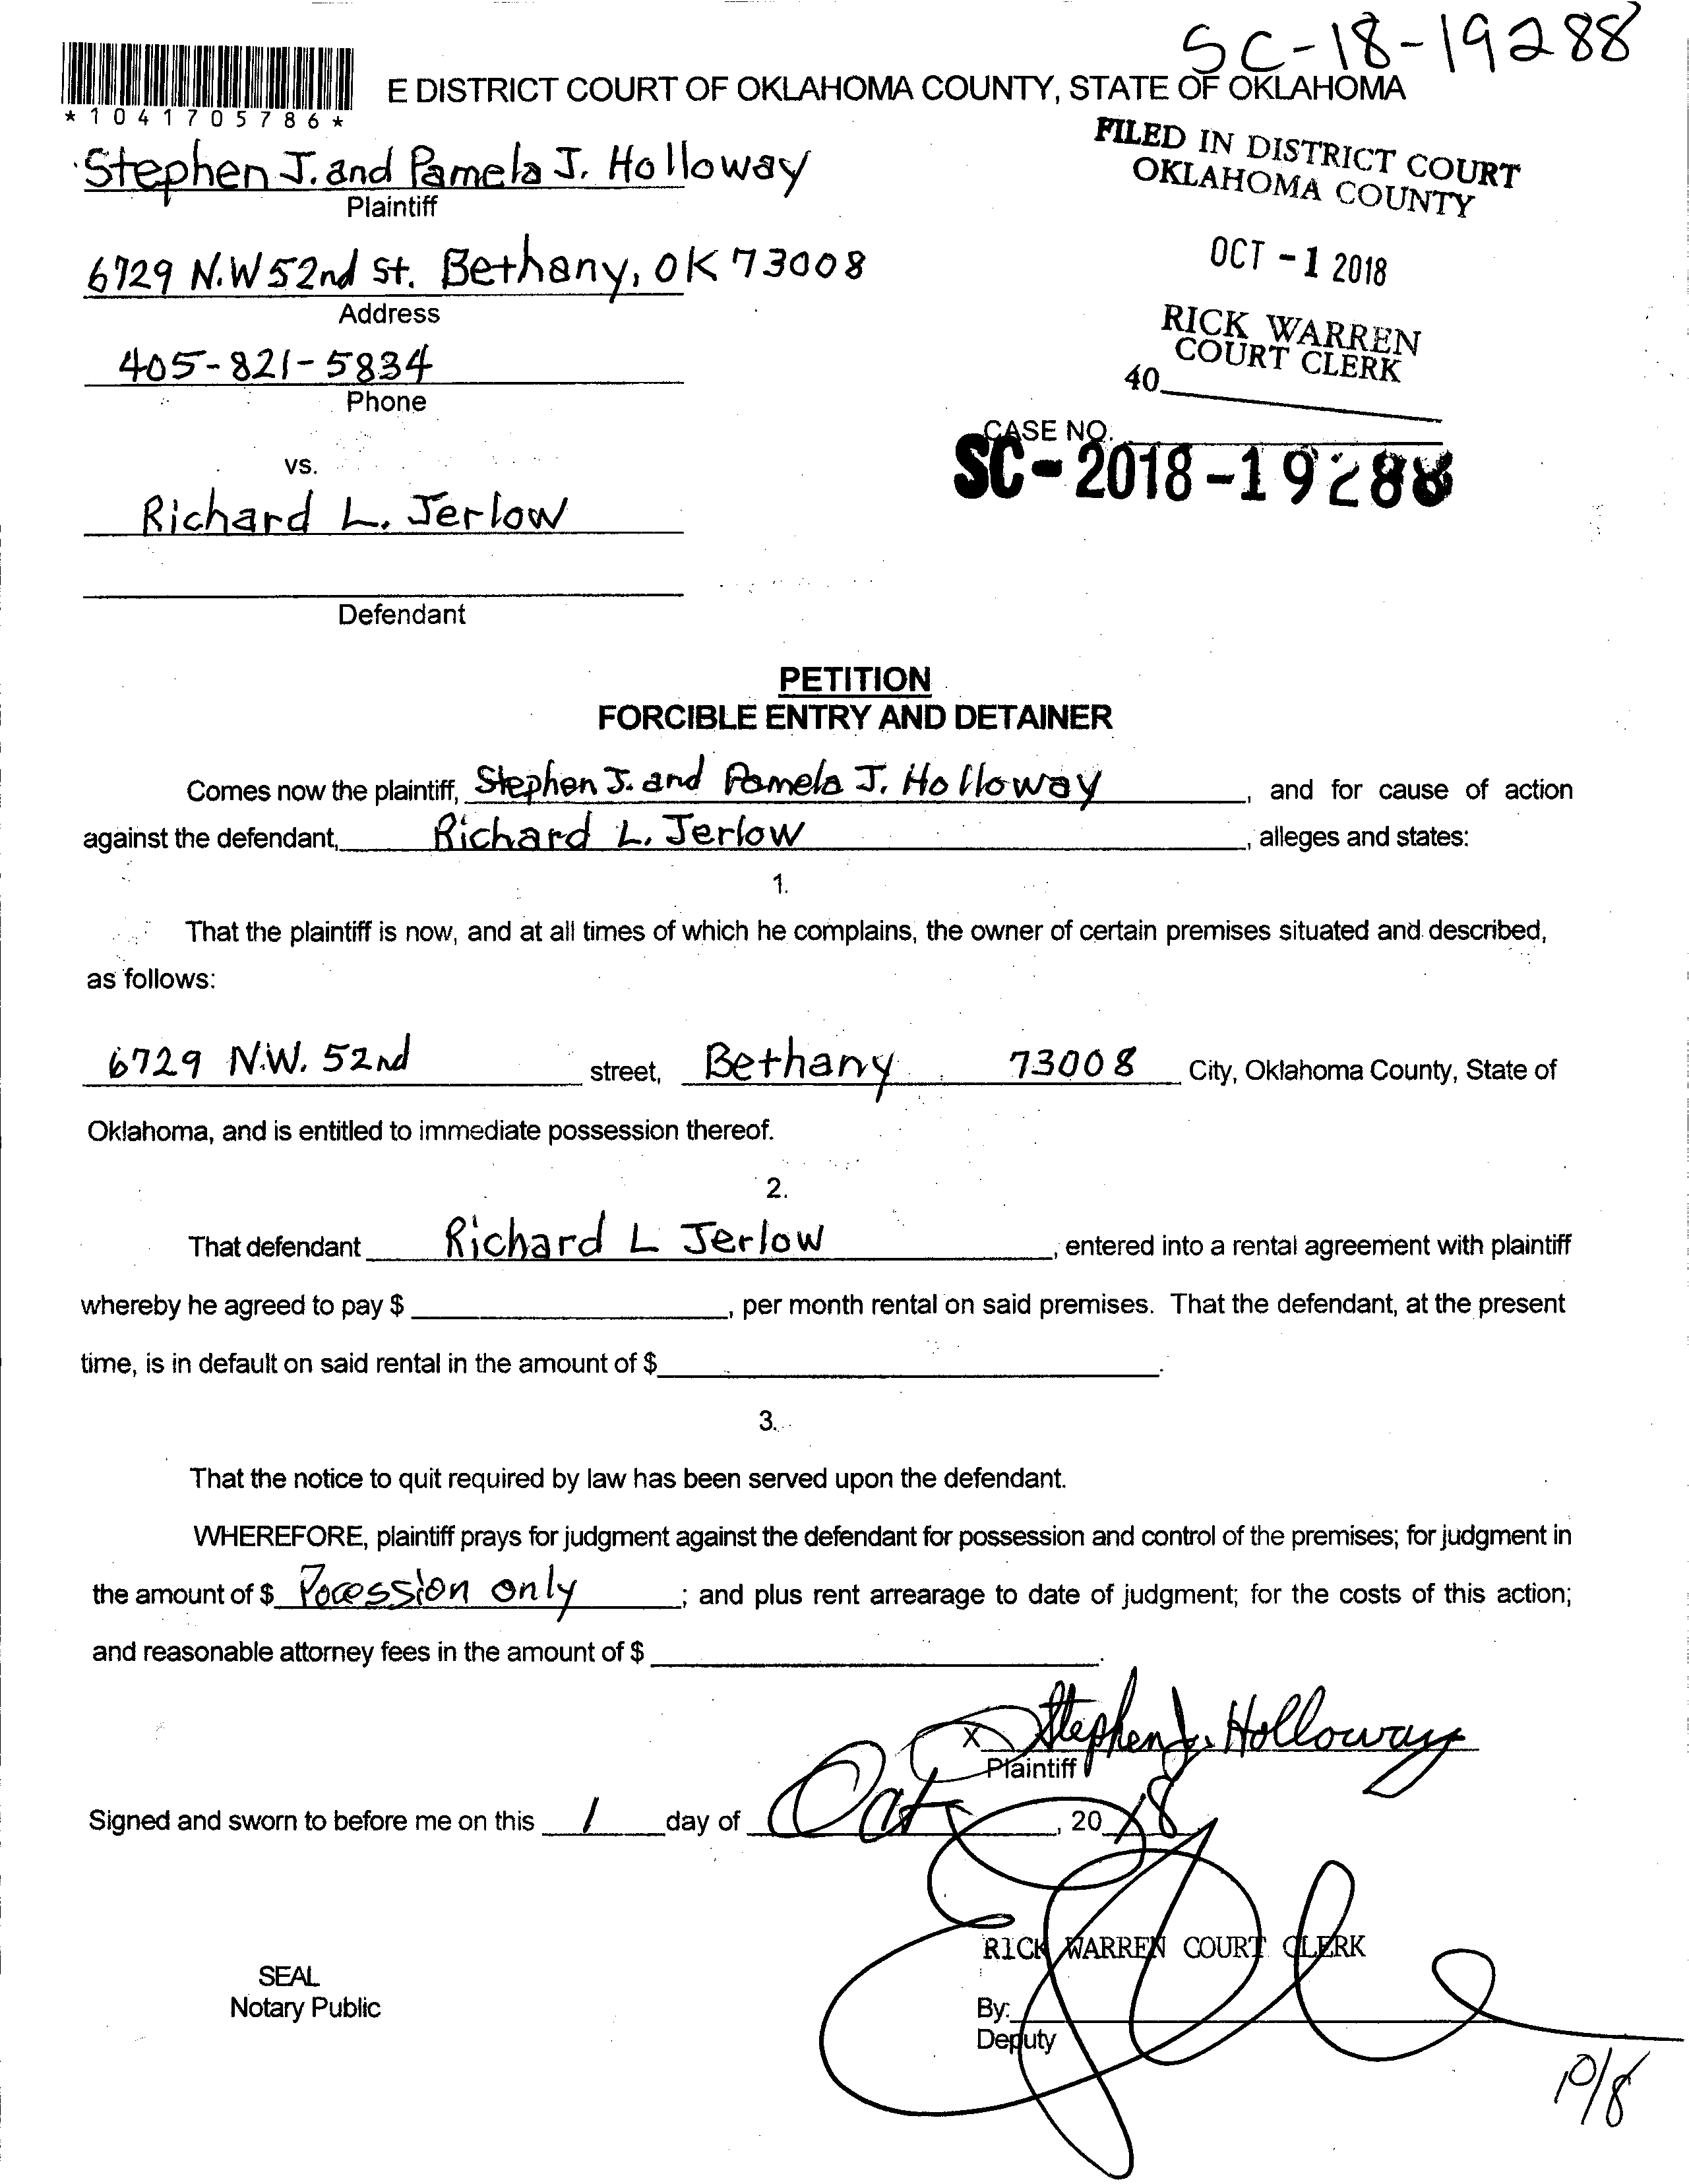 SC-18-19288
E DISTRICT COURT OF OKLAHOMA COUNTY, STATE OF OKLAHOMA
*1041705786*
FILED IN DISTRICT COURT
OKLAHOMA COUNTY
Stephen J. and Pamela J. Holloway
Plaintiff
OCT -1 2018
6729 N.W 52nd st. Bethany, OK 73008
Address
RICK WARREN
COURT CLERK
40
405-821-5834
Phone
CASE NO.
SC-2018-19288
vs.
Richard L. Jerlow
Defendant
PETITION
FORCIBLE ENTRY AND DETAINER
Comes now the plaintiff, Stephen J. and Pamela J. Holloway, and for cause of action
against the defendant, Richard L. Jerlow, alleges and states:
1.
That the plaintiff is now, and at all times of which he complains, the owner of certain premises situated and described,
as follows:
6729 N.W. 52nd street, Bethany 73008 City, Oklahoma County, State of
Oklahoma, and is entitled to immediate possession thereof.
2.
That defendant Richard L Jerlow, entered into a rental agreement with plaintiff
whereby he agreed to pay $ , per month rental on said premises. That the defendant, at the present
time, is in default on said rental in the amount of $ .
3.
That the notice to quit required by law has been served upon the defendant.
WHEREFORE, plaintiff prays for judgment against the defendant for possession and control of the premises; for judgment in
the amount of $ Pocession only ; and plus rent arrearage to date of judgment; for the costs of this action;
and reasonable attorney fees in the amount of $ .
X Stephen J. Holloway
Plaintiff
Signed and sworn to before me on this 1 day of Oct, 20 18
RICK WARREN COURT CLERK
SEAL
Notary Public
By:
Deputy
10/8